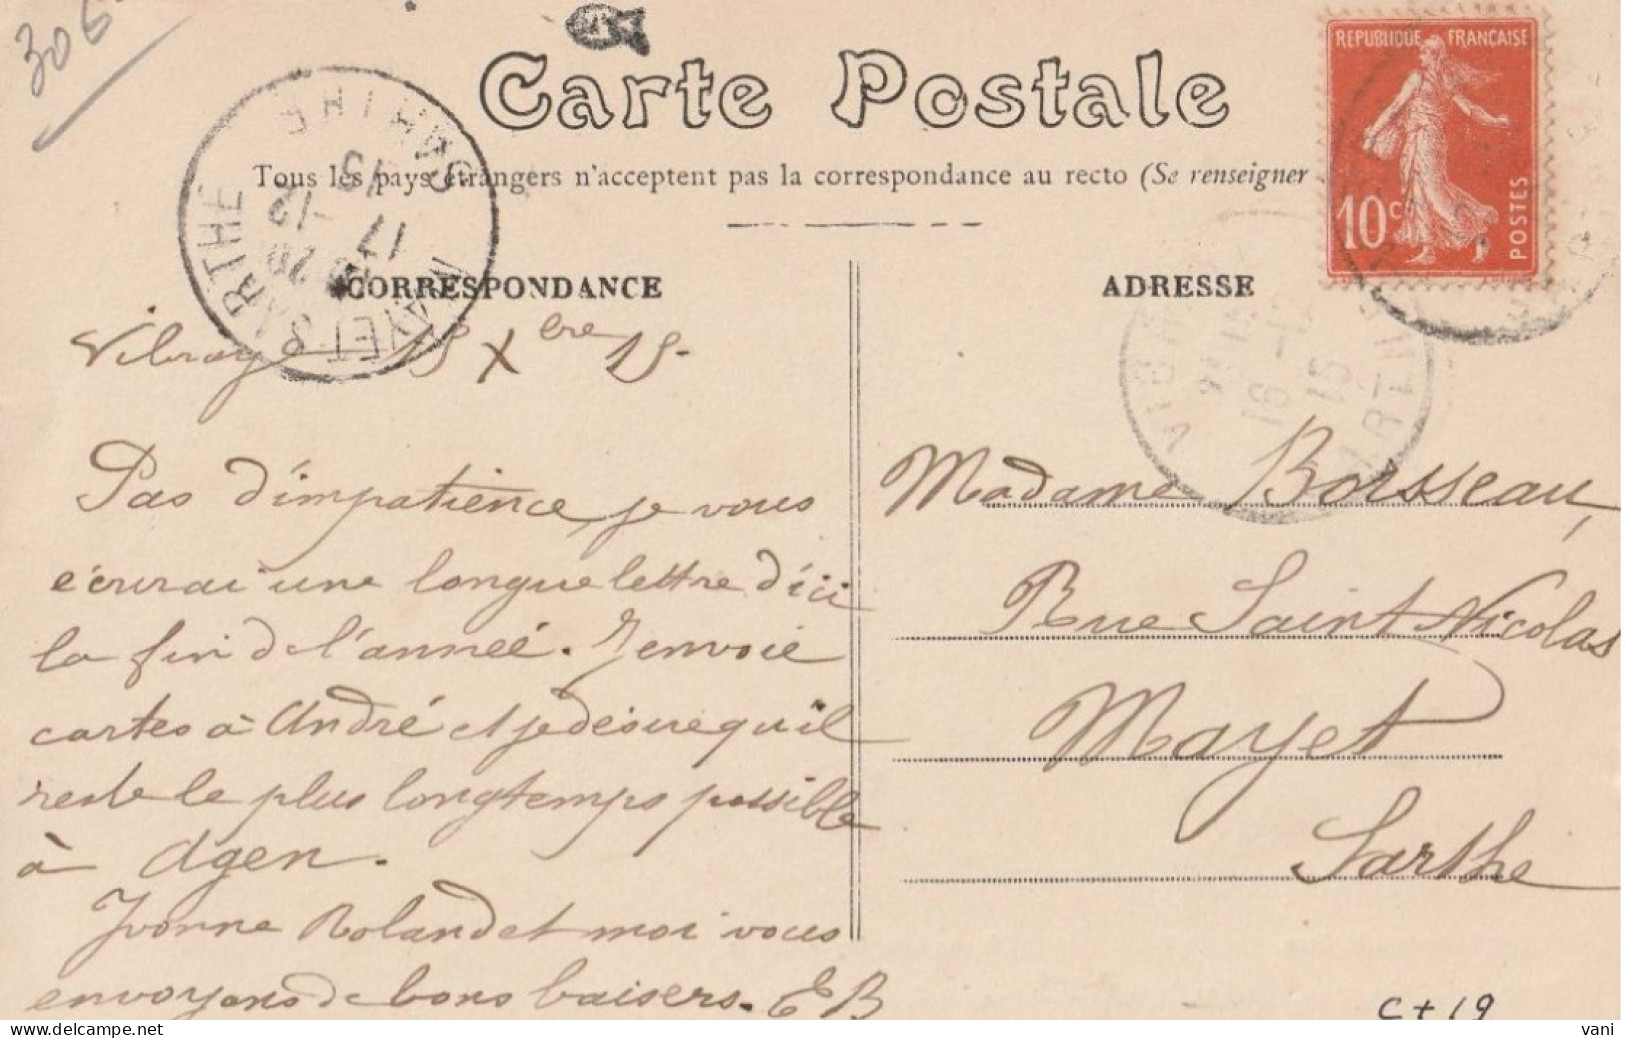 306
Carte Postale
Tous les pays étrangers n'acceptent pas la correspondance au recto (Se renseigner
REPUBLIQUE FRANÇAISE
10c
POSTES
MAYET SARTHE
SARTHE
17 -12
15
CORRESPONDANCE
ADRESSE
VIBRA
16 -12
15
Vibraye 15 Xbre 15-
Pas d'impatience, je vous
écrirai une longue lettre d'ici
la fin de l'année. J'envoie
cartes à André et je désire qu'il
reste le plus longtemps possible
à Agen.
Yvonne Roland et moi vous
envoyons de bons baisers. EB
Madame Boisseau,
Rue Saint Nicolas
Mayet
Sarthe
C+19
vani
delcampe.net